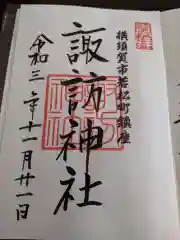 横須賀市若松町鎮座
諏訪神社
令和三年十一月廿一日